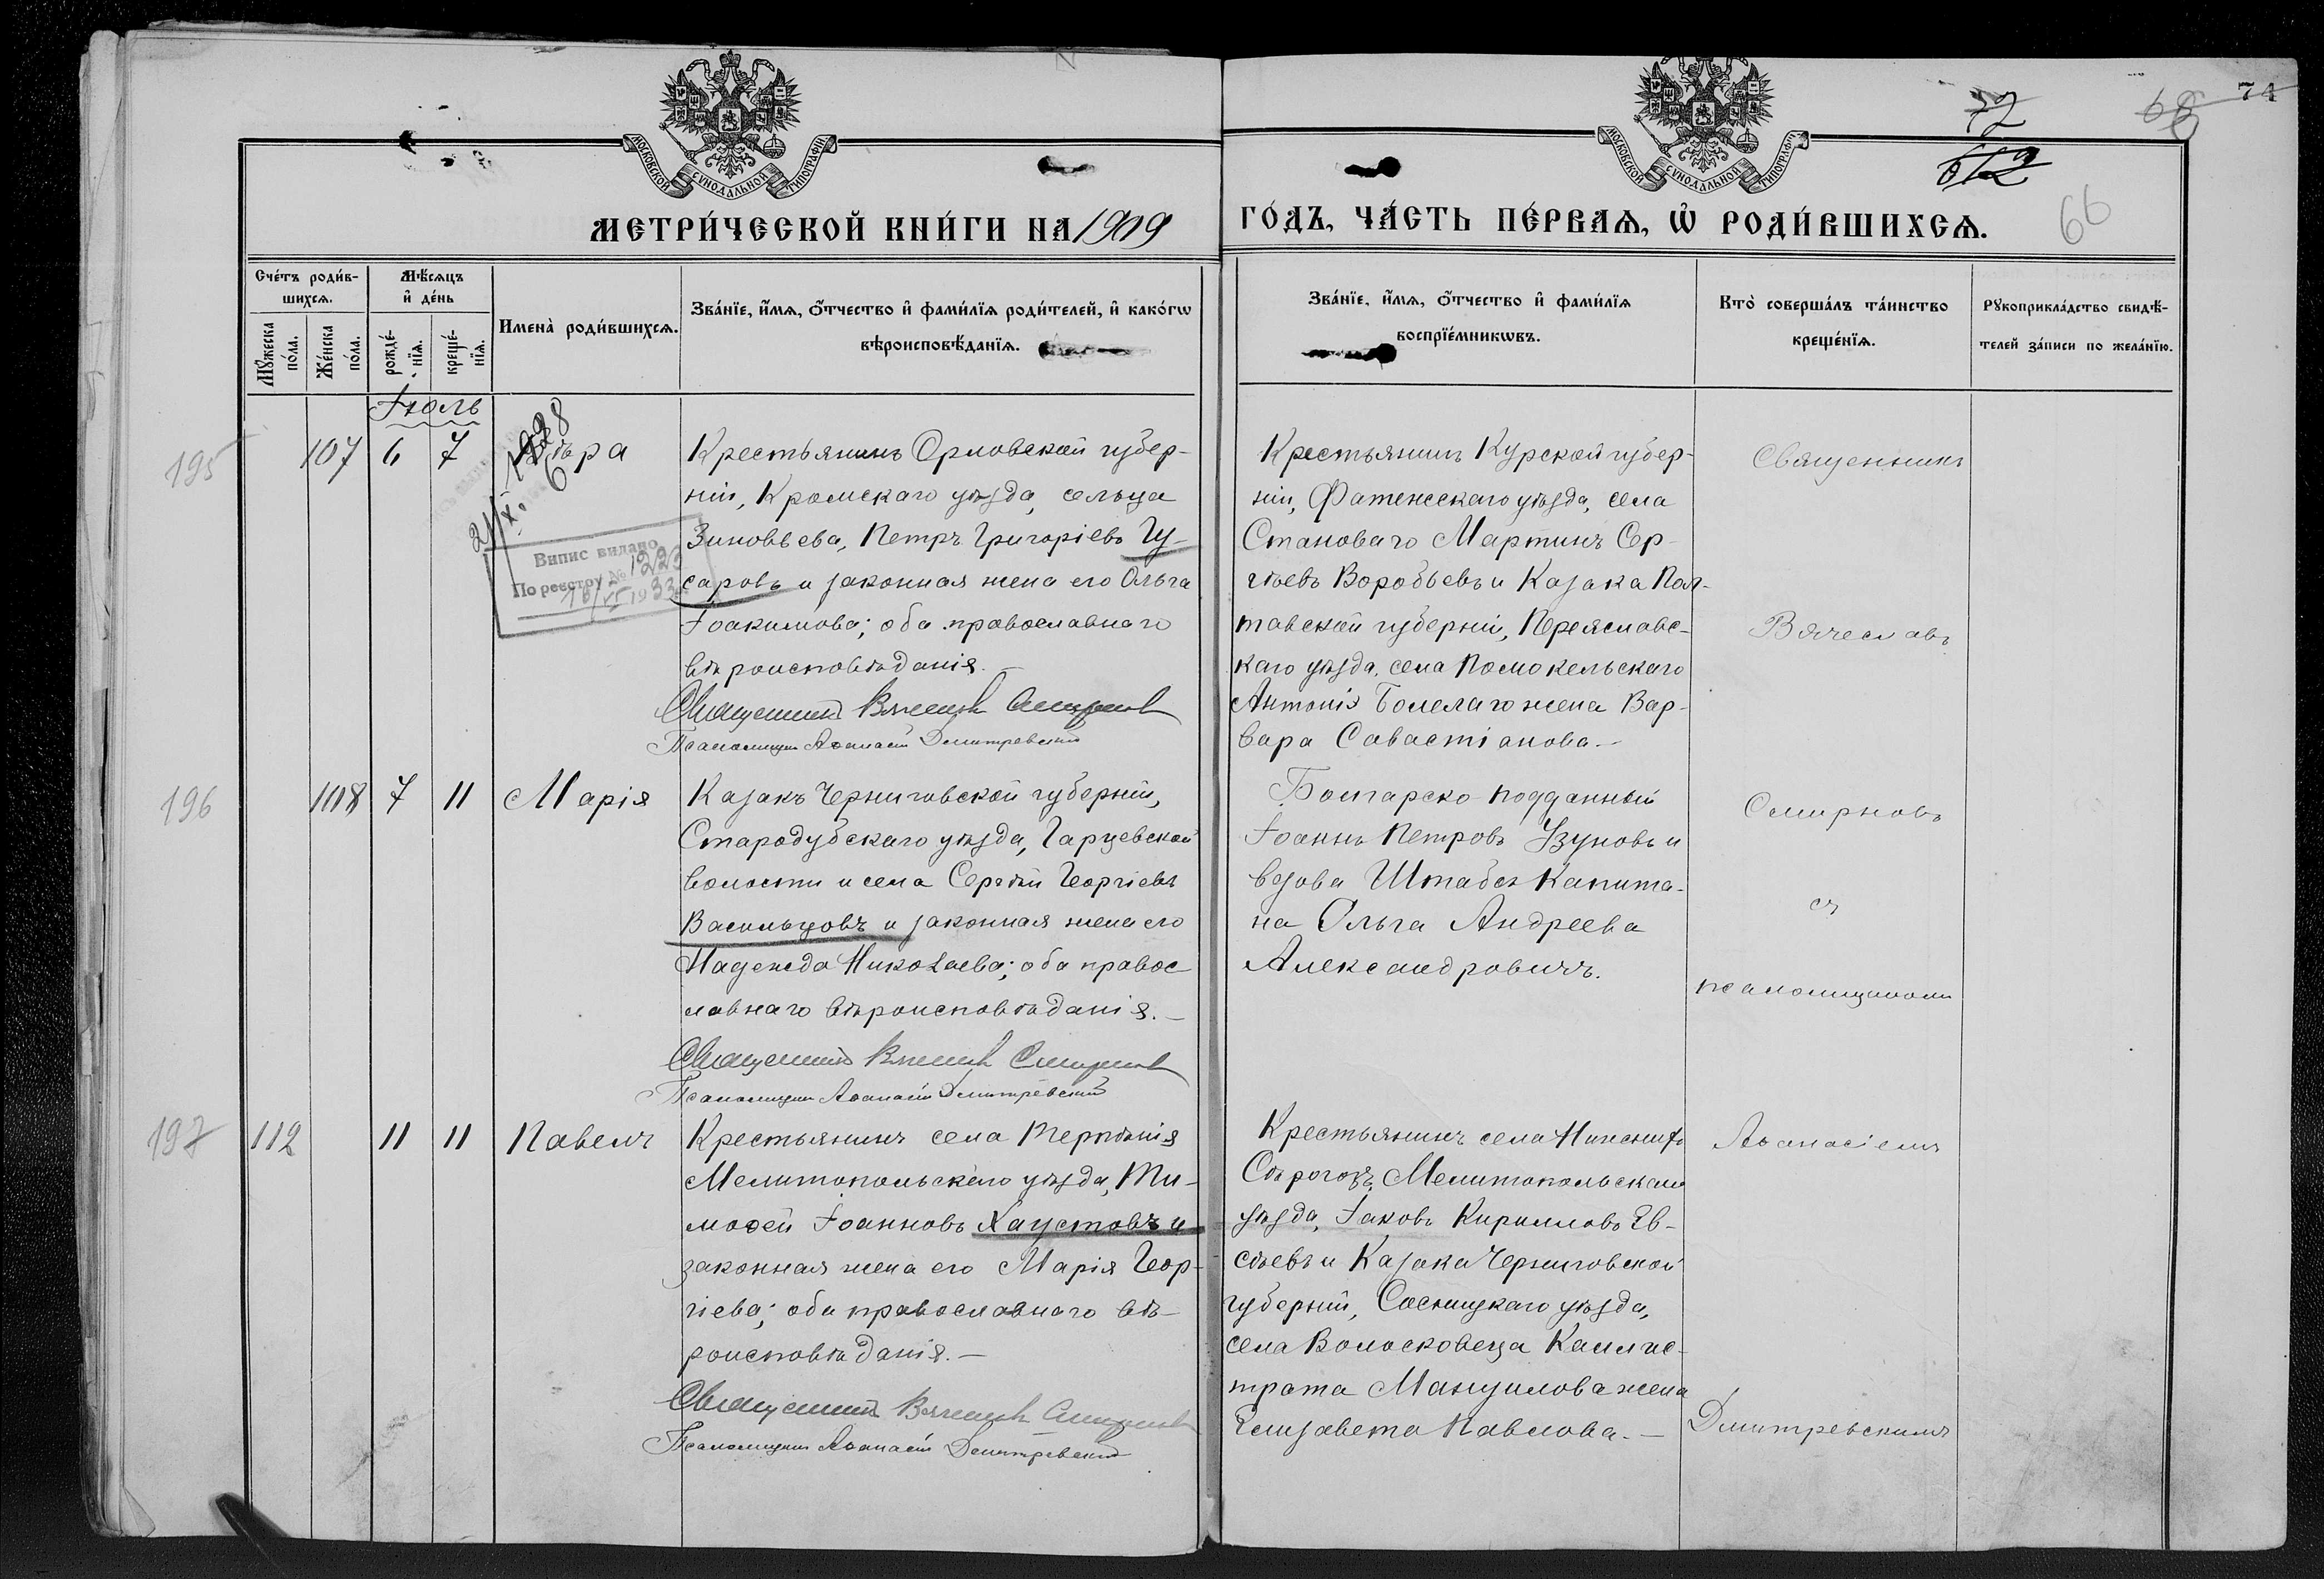 74
68
72
66
МОСКОВСКОЙ СУНОДАЛЬНОЙ ТИПОГРАФІИ
МОСКОВСКОЙ СУНОДАЛЬНОЙ ТИПОГРАФІИ
МЕТРИ́ЧЕСКОЙ КНИ́ГИ НА 1909 ГО́ДЪ, ЧА́СТЬ ПЕ́РВАѦ, Ѽ РОДИ́ВШИХСѦ.
Сче́тъ роди́вшихсѧ.
Мꙋ́жеска по́ла.
Же́нска по́ла.
Мѣ́сѧцъ и҆ де́нь
рожде́-нїѧ.
креще́-нїѧ.
Имена̀ роди́вшихсѧ.
Зва́нїе, и҆́мѧ, ѻ҆́тчество и҆ фами́лїѧ роди́телей, и҆ како́гѡ
вѣроисповѣ́данїѧ.
Зва́нїе, и҆́мѧ, ѻ҆́тчество и҆ фами́лїѧ
воспрїе́мникѡвъ.
Кто̀ соверша́лъ та́инство
креще́нїѧ.
Рꙋкоприкла́дство свидѣ́-
телей за́писи по жела́нїю.
Іюль
195
107 6 7 Вѣра
1928
Випис видано
По реєстру № 1223
Крестьянинъ Орловской губер-
ніи, Кромскаго уѣзда, сельца
Зиновьева, Петръ Григоріевъ Гу-
саровъ и законная жена его Ольга
Іоакимова; оба православнаго
вѣроисповѣданія.—
Священникъ Вячеславъ Смирновъ
Псаломщикъ Аѳанасій Дмитревскій
Крестьянинъ Курской губер-
ніи, Фатежскаго уѣзда, села
Становаго Мартинъ Сер-
гѣевъ Воробьевъ и Казака Пол-
тавской губерніи, Переяславс-
каго уѣзда, села Помокельскаго
Антонія жена Вар-
вара Савастіанова.—
Священникъ
Вячеславъ
196
108 7 11 Марія
Казакъ Черниговской губерніи,
Стародубскаго уѣзда, Гарцевской
волости и села Сергѣй Георгіевъ
Васильцовъ и законная жена его
Надежда Николаева; оба правос-
лавнаго вѣроисповѣданія.—
Священникъ Вячеславъ Смирновъ
Псаломщикъ Аѳанасій Дмитревскій
Болгарско-подданный
Іоаннъ Петровъ Узуновъ и
вдова Штабсъ Капита-
на Ольга Андреева
Александровичъ.
Смирновъ
съ
псаломщикомъ
197
112 11 11 Павелъ
Крестьянинъ села Терпѣнія
Мелитопольскаго уѣзда, Ти-
моѳей Іоанновъ Хаустовъ и
законная жена его Марія Геор-
гіева; оба православнаго вѣ-
роисповѣданія.—
Священникъ Вячеславъ Смирновъ
Псаломщикъ Аѳанасій Дмитревскій
Крестьянинъ села Нижнихъ
Сѣрогозъ, Мелитопольскаго
уѣзда, Іаковъ Кирилловъ Ев-
сѣевъ и Казака Черниговской
губерніи, Сосницкаго уѣзда,
села Волосковеца Каллис-
трата Мануилова жена
Елизавета Павлова.—
Аѳанасіемъ
Дмитревскимъ